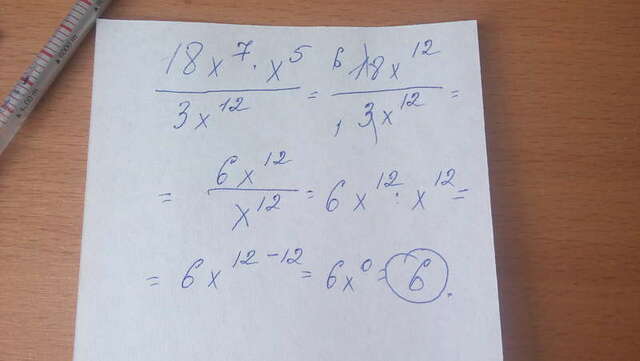 18x⁷·x⁵ / 3x¹² = ⁶18x¹² / ₁3x¹² =
= 6x¹² / x¹² = 6x¹² : x¹² =
= 6x¹²⁻¹² = 6x⁰ = 6.